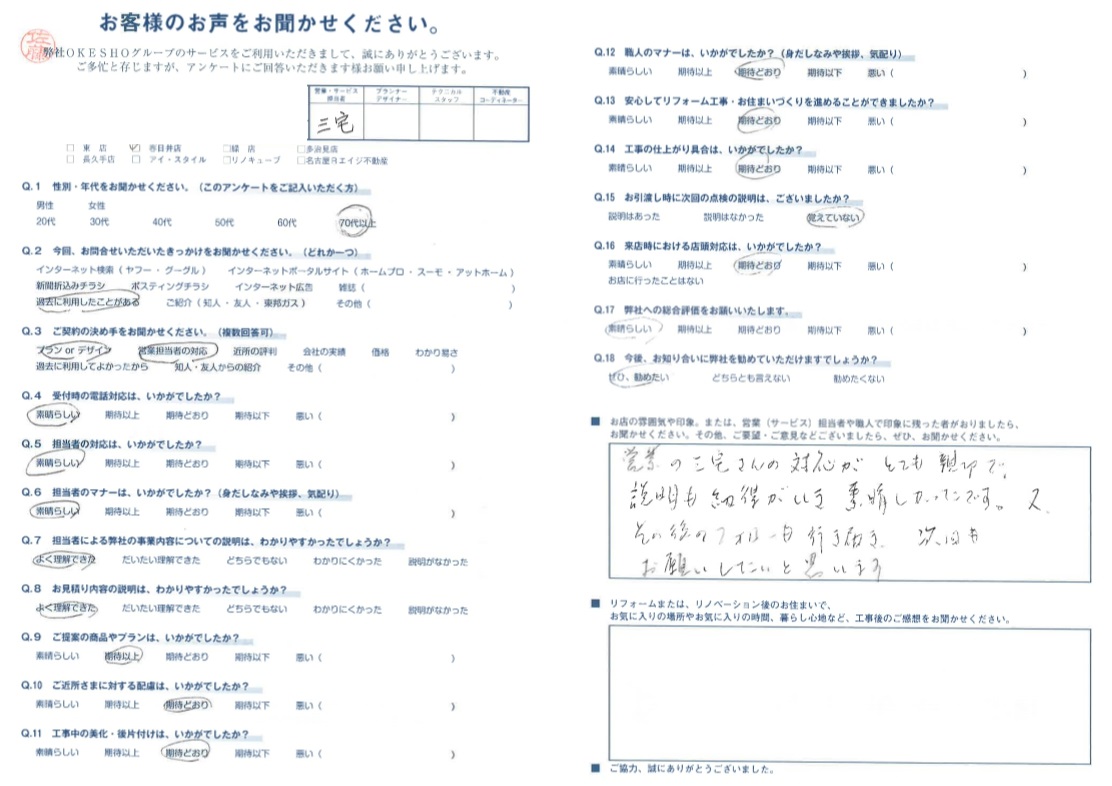 お客様のお声をお聞かせください。
佐藤
弊社OKESHOグループのサービスをご利用いただきまして、誠にありがとうございます。
ご多忙と存じますが、アンケートにご回答いただきます様お願い申し上げます。
営業・サービス担当者 プランナーデザイナー テクニカルスタッフ 不動産コーディネーター
三宅
□ 東 店 ☑ 春日井店 □緑 店 □多治見店
□ 長久手店 □ アイ・スタイル □リノキューブ □名古屋日エイジ不動産
Q.1 性別・年代をお聞かせください。（このアンケートをご記入いただく方）
男性 女性
20代 30代 40代 50代 60代 70代以上
Q.2 今回、お問合せいただいたきっかけをお聞かせください。（どれか一つ）
インターネット検索（ ヤフー ・ グーグル ） インターネットポータルサイト（ ホームプロ ・ スーモ ・ アットホーム ）
新聞折込みチラシ ポスティングチラシ インターネット広告 雑誌（ ）
過去に利用したことがある ご紹介（ 知人 ・ 友人 ・ 東邦ガス ） その他（ ）
Q.3 ご契約の決め手をお聞かせください。（複数回答可）
プラン or デザイン 営業担当者の対応 近所の評判 会社の実績 価格 わかり易さ
過去に利用してよかったから 知人・友人からの紹介 その他（ ）
Q.4 受付時の電話対応は、いかがでしたか？
素晴らしい 期待以上 期待どおり 期待以下 悪い（ ）
Q.5 担当者の対応は、いかがでしたか？
素晴らしい 期待以上 期待どおり 期待以下 悪い（ ）
Q.6 担当者のマナーは、いかがでしたか？（身だしなみや挨拶、気配り）
素晴らしい 期待以上 期待どおり 期待以下 悪い（ ）
Q.7 担当者による弊社の事業内容についての説明は、わかりやすかったでしょうか？
よく理解できた だいたい理解できた どちらでもない わかりにくかった 説明がなかった
Q.8 お見積り内容の説明は、わかりやすかったでしょうか？
よく理解できた だいたい理解できた どちらでもない わかりにくかった 説明がなかった
Q.9 ご提案の商品やプランは、いかがでしたか？
素晴らしい 期待以上 期待どおり 期待以下 悪い（ ）
Q.10 ご近所さまに対する配慮は、いかがでしたか？
素晴らしい 期待以上 期待どおり 期待以下 悪い（ ）
Q.11 工事中の美化・後片付けは、いかがでしたか？
素晴らしい 期待以上 期待どおり 期待以下 悪い（ ）
Q.12 職人のマナーは、いかがでしたか？（身だしなみや挨拶、気配り）
素晴らしい 期待以上 期待どおり 期待以下 悪い（ ）
Q.13 安心してリフォーム工事・お住まいづくりを進めることができましたか？
素晴らしい 期待以上 期待どおり 期待以下 悪い（ ）
Q.14 工事の仕上がり具合は、いかがでしたか？
素晴らしい 期待以上 期待どおり 期待以下 悪い（ ）
Q.15 お引渡し時に次回の点検の説明は、ございましたか？
説明はあった 説明はなかった 覚えていない
Q.16 来店時における店頭対応は、いかがでしたか？
素晴らしい 期待以上 期待どおり 期待以下 悪い（ ）
お店に行ったことはない
Q.17 弊社への総合評価をお願いいたします。
素晴らしい 期待以上 期待どおり 期待以下 悪い（ ）
Q.18 今後、お知り合いに弊社を勧めていただけますでしょうか？
ぜひ、勧めたい どちらとも言えない 勧めたくない
■ お店の雰囲気や印象。または、営業（サービス）担当者や職人で印象に残った者がおりましたら、
お聞かせください。その他、ご要望・ご意見などございましたら、ぜひ、お聞かせください。
営業の三宅さんの対応が とても 親切で、
説明も納得がいき 素晴しかったです。 又、
その後のフォローも 行き届き 次回も
お願いしたいと思います
■ リフォームまたは、リノベーション後のお住まいで、
お気に入りの場所やお気に入りの時間、暮らし心地など、工事後のご感想をお聞かせください。
■ ご協力、誠にありがとうございました。